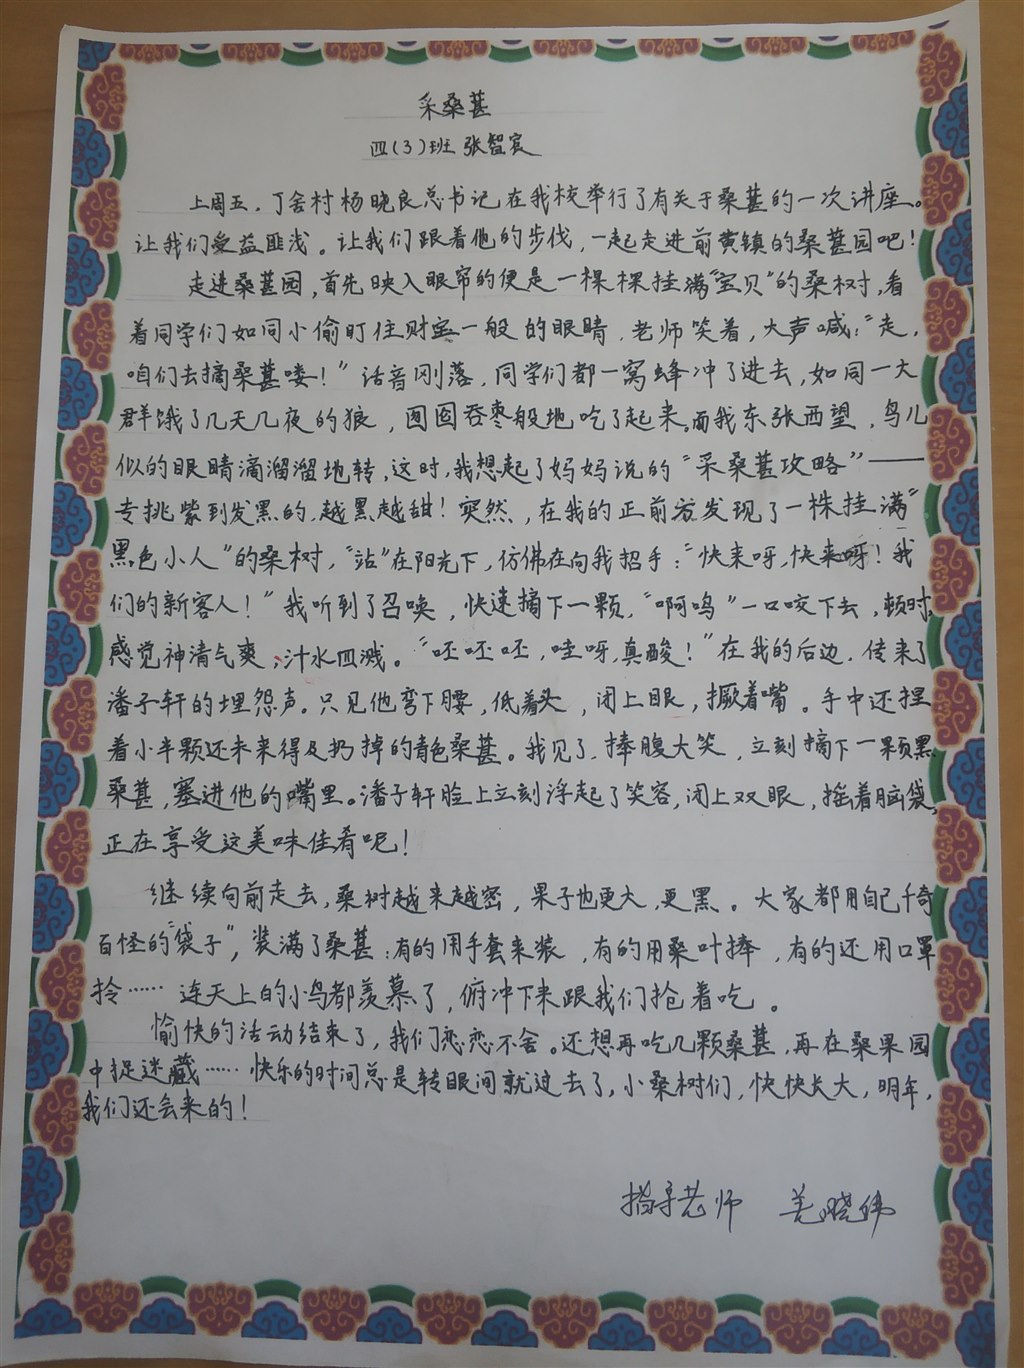 采桑葚
四(3)班 张智宸
上周五，丁舍村杨晓良总书记在我校举行了有关于桑葚的一次讲座。
让我们受益匪浅。让我们跟着他的步伐，一起走进前黄镇的桑葚园吧！
走进桑葚园，首先映入眼帘的便是一棵棵挂满“宝贝”的桑树，看
着同学们如同小偷盯住财宝一般的眼睛，老师笑着，大声喊：“走，
咱们去摘桑葚喽！”话音刚落，同学们都一窝蜂冲了进去，如同一大
群饿了几天几夜的狼，囫囵吞枣般地吃了起来。而我东张西望，鸟儿
似的眼睛滴溜溜地转，这时，我想起了妈妈说的“采桑葚攻略”——
专挑紫到发黑的，越黑越甜！突然，在我的正前方发现了一株挂满“
黑色小人”的桑树，“站”在阳光下，仿佛在向我招手：“快来呀，快来呀！我
们的新客人！”我听到了召唤，快速摘下一颗，“啊呜”一口咬下去，顿时，
感觉神清气爽，汁水四溅。“呸呸呸，哇呀，真酸！”在我的后边，传来了
潘子轩的埋怨声。只见他弯下腰，低着头，闭上眼，撅着嘴。手中还捏
着小半颗还未来得及扔掉的青色桑葚。我见了，捧腹大笑，立刻摘下一颗黑
桑葚，塞进他的嘴里。潘子轩脸上立刻浮起了笑容，闭上双眼，摇着脑袋，
正在享受这美味佳肴呢！
继续向前走去，桑树越来越密，果子也更大，更黑。大家都用自己千奇
百怪的“袋子”，装满了桑葚：有的用手套来装，有的用桑叶捧，有的还用口罩
拎……连天上的小鸟都羡慕了，俯冲下来跟我们抢着吃。
愉快的活动结束了，我们恋恋不舍。还想再吃几颗桑葚，再在桑果园
中捉迷藏……快乐的时间总是转眼间就过去了，小桑树们，快快长大，明年，
我们还会来的！
指导老师 姜晓伟